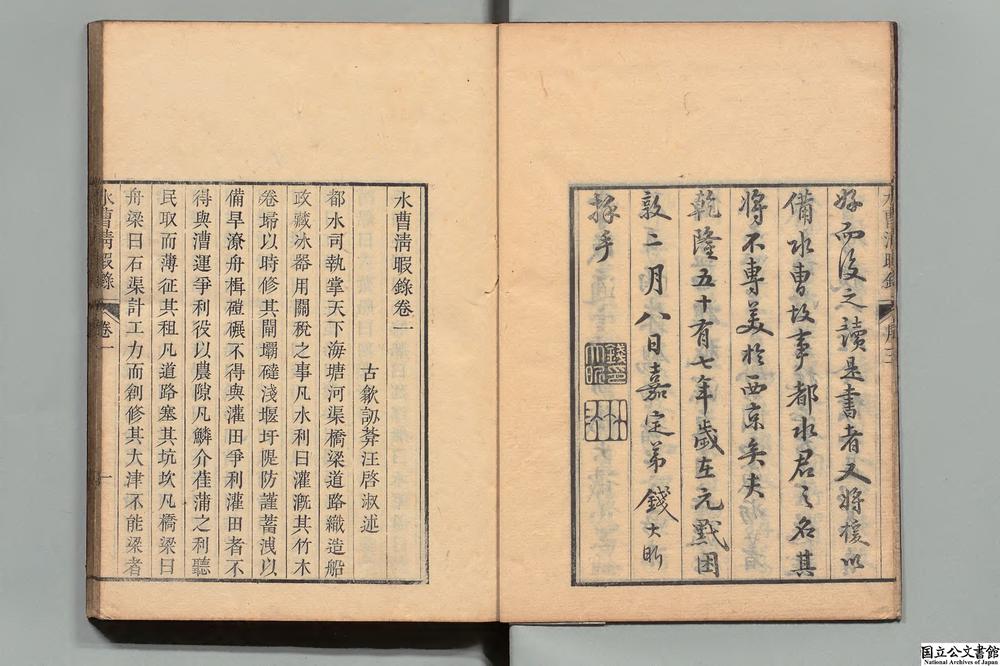 水曹清暇錄
序
三
好而後之讀是書者又将援以
備水曹故事都水君之名其
將不專美於西京矣夫
乾隆五十有七年歲在元黓困
敦二月八日嘉定弟錢大昕
拜手
錢印大昕
竹汀
水曹淸暇錄卷一
古歙訒葊汪啓淑述
都水司執掌天下海塘河渠橋梁道路織造船
政藏氷器用關稅之事凡水利曰灌漑其竹木
卷埽以時修其閘壩磋淺堰圩隄防謹蓄洩以
備旱潦舟楫磑碾不得與灌田爭利灌田者不
得與漕運爭利役以農隙凡鱗介萑蒲之利聽
民取而薄征其租凡道路塞其坑坎凡橋梁曰
舟梁曰石渠計工力而創修其大津不能梁者
水曹淸暇錄
卷一
一
国立公文書館
National Archives of Japan